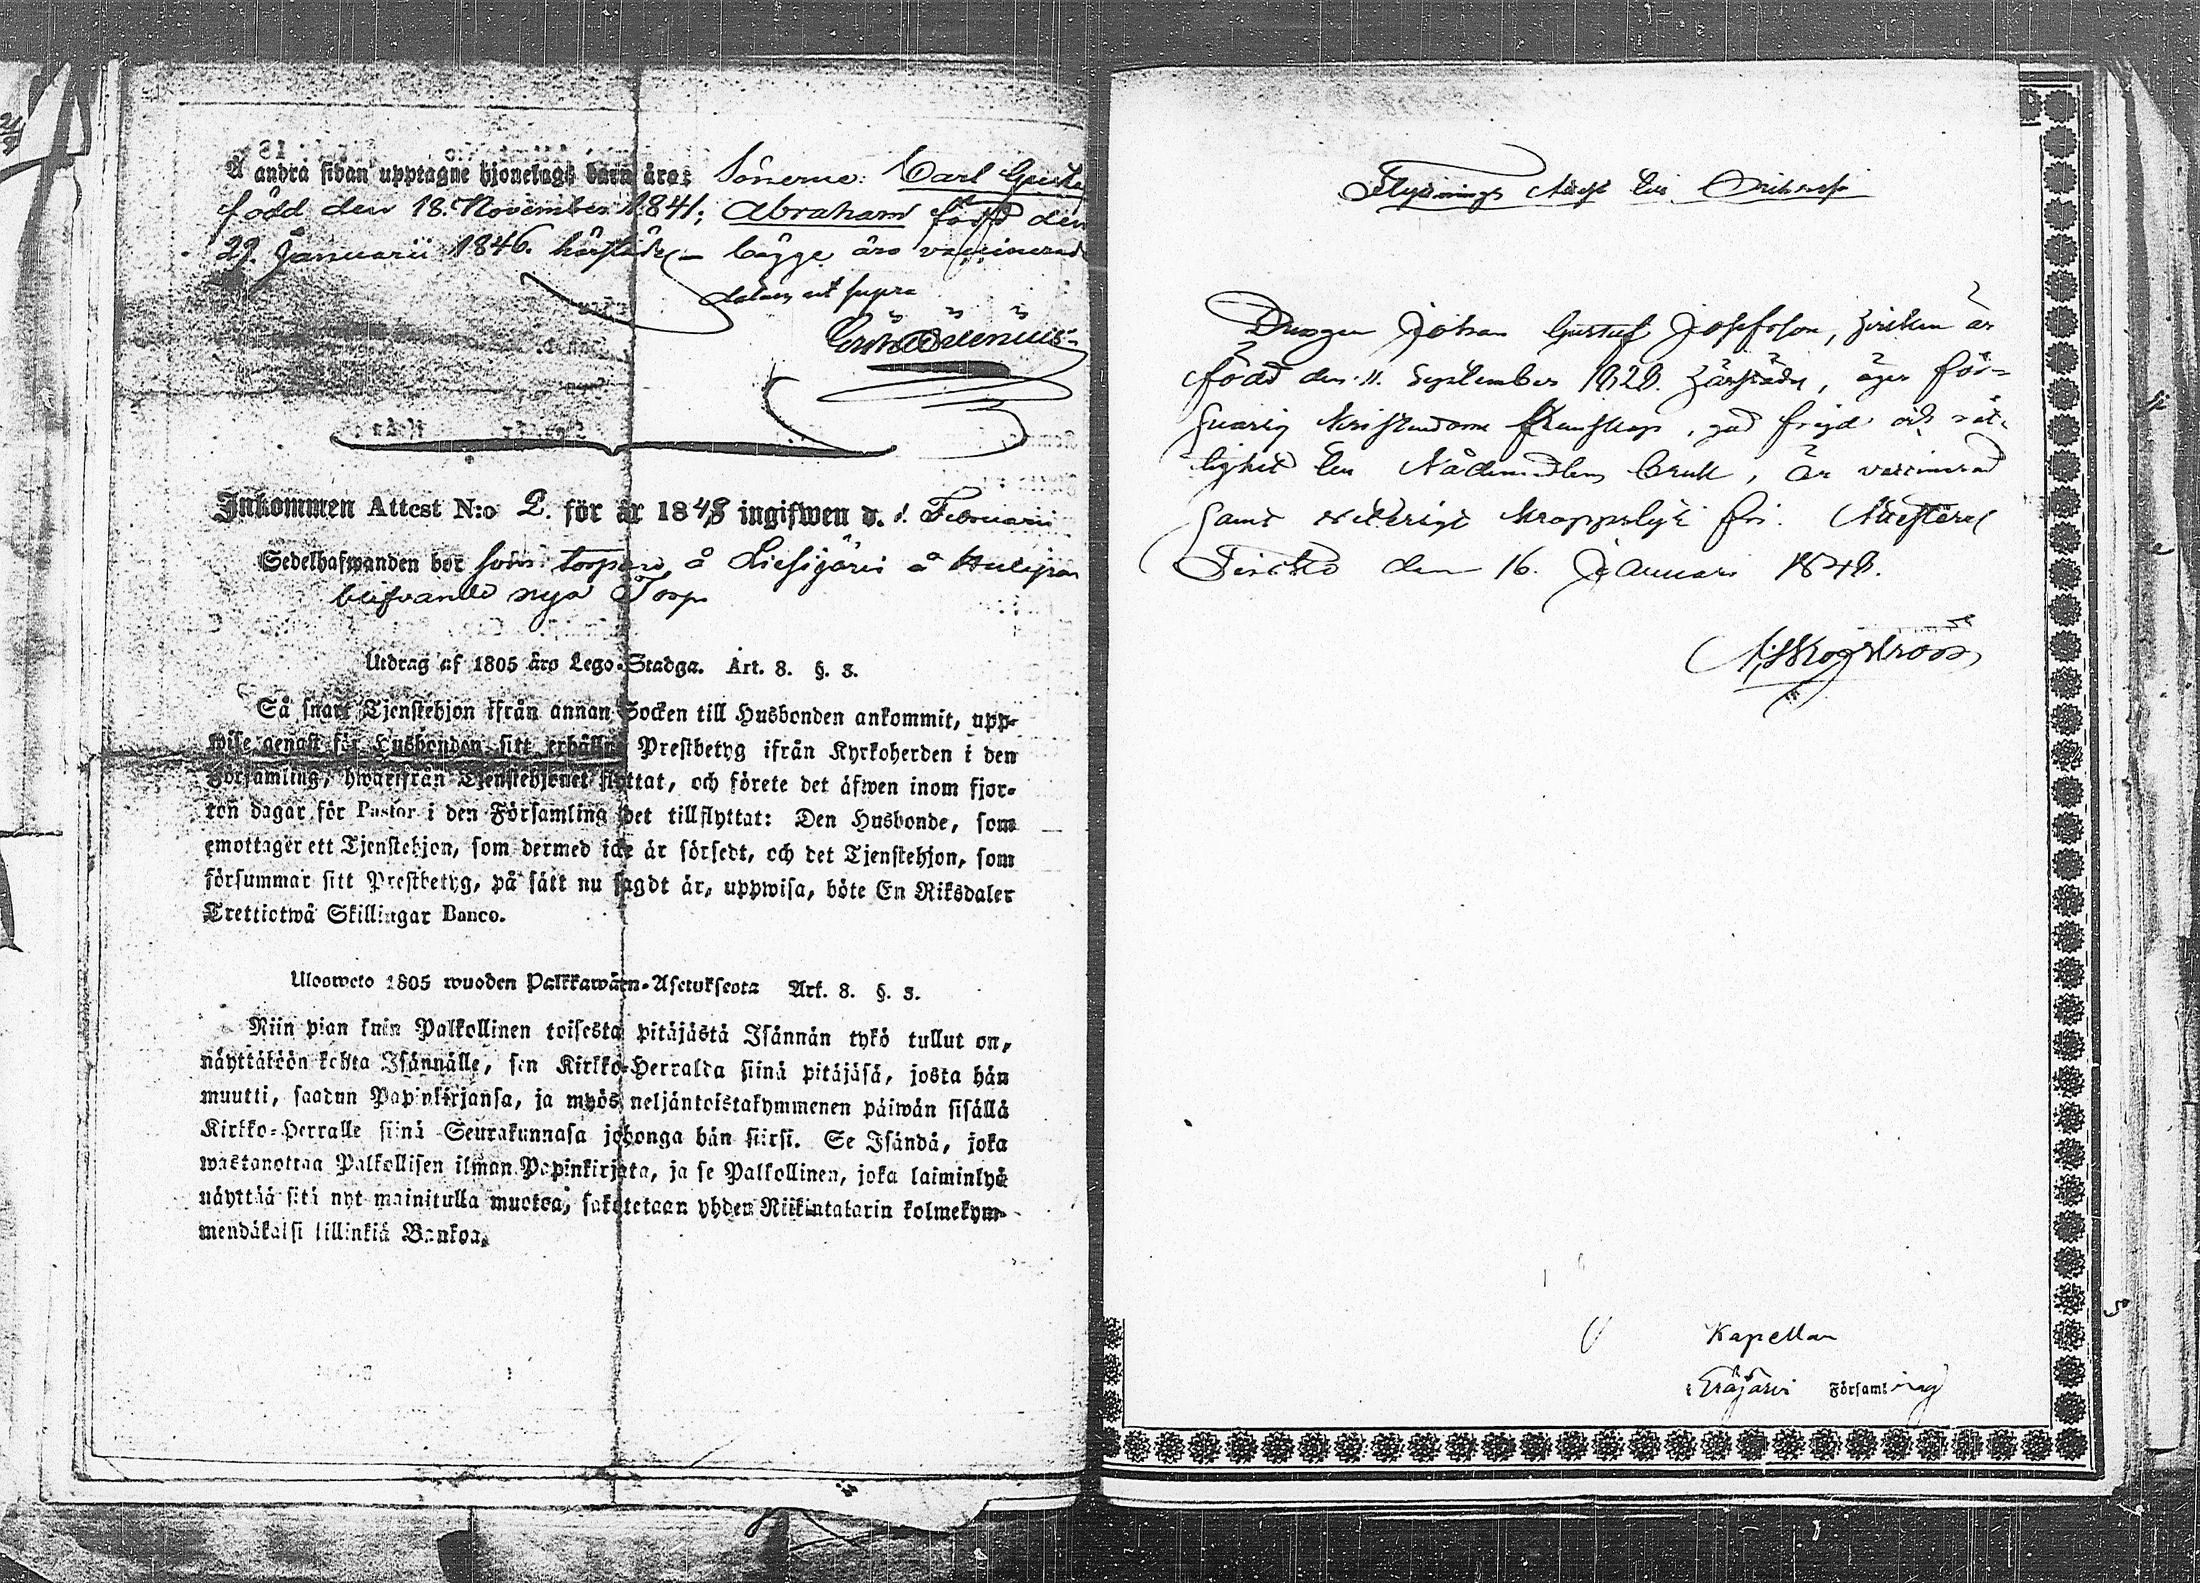 Å andra sidan upptagne hjonelags barn äro: Sönerne: Carl Gustaf
född den 18. November 1841; Abraham född den
29. Januarii 1846. härstädes – bägge äro vaccinerade
datum ut supra
Inkommen Attest N:o 2. för år 1848 ingifwen d. 1. Februarii
Sedelhafwanden bor som torpare å Liesijärvi å
nya Torp
Utdrag af 1805 års Lego-Stadga. Art. 8. §. 3.
Så snart Tjenstehjon ifrån annan Socken till Husbonden ankommit, upp-
wise genast för Husbonden sitt erhållna Prestbetyg ifrån Kyrkoherden i den
Församling, hwarifrån Tjenstehjonet flyttat, och förete det äfwen inom fjor-
ton dagar för Pastor i den Församling det tillflyttat: Den Husbonde, som
emottager ett Tjenstehjon, som dermed icke är försedt, och det Tjenstehjon, som
försummar sitt Prestbetyg, på sätt nu sagdt är, uppwisa, böte En Riksdaler
Trettiotwå Skillingar Banco.
Uloswето 1805 wuoden Palkkawäen-Asetuksesta Art. 8. §. 3.
Niin pian kuin Palkollinen toisesta pitäjästä Isännän tykö tullut on,
näyttäköön kohta Isännälle, sen Kirkko-Herralta siinä pitäjäsä, josta hän
muutti, saadun Papinkirjansa, ja myös neljäntoistakymmenen päiwän sisällä
Kirkko-Herralle siinä Seurakunnasa johonga hän siirsi. Se Isändä, joka
wastanottaa Palkollisen ilman Papinkirjata, ja se Palkollinen, joka laiminlyö
näyttää sitä nyt mainitulla muotoa, sakotetaan yhden Riikintalarin kolmekym-
mendäkaksi killinkiä Bankoa.
Flyttnings Attest till Orihvesi
Drengen Johan Gustaf Josefsson, hvilken är
född den 11. September 1828. härstädes, äger för-
svarlig Kristendoms Kunskap, god frejd och rät-
tighet till Nådemedlens bruk, är vaccinerad
samt ricktigt kroppslyte fri. Attesterar
den 16. Januari 1848.
A. Skogströöm
Kapellan
i Eräjärvi Församling